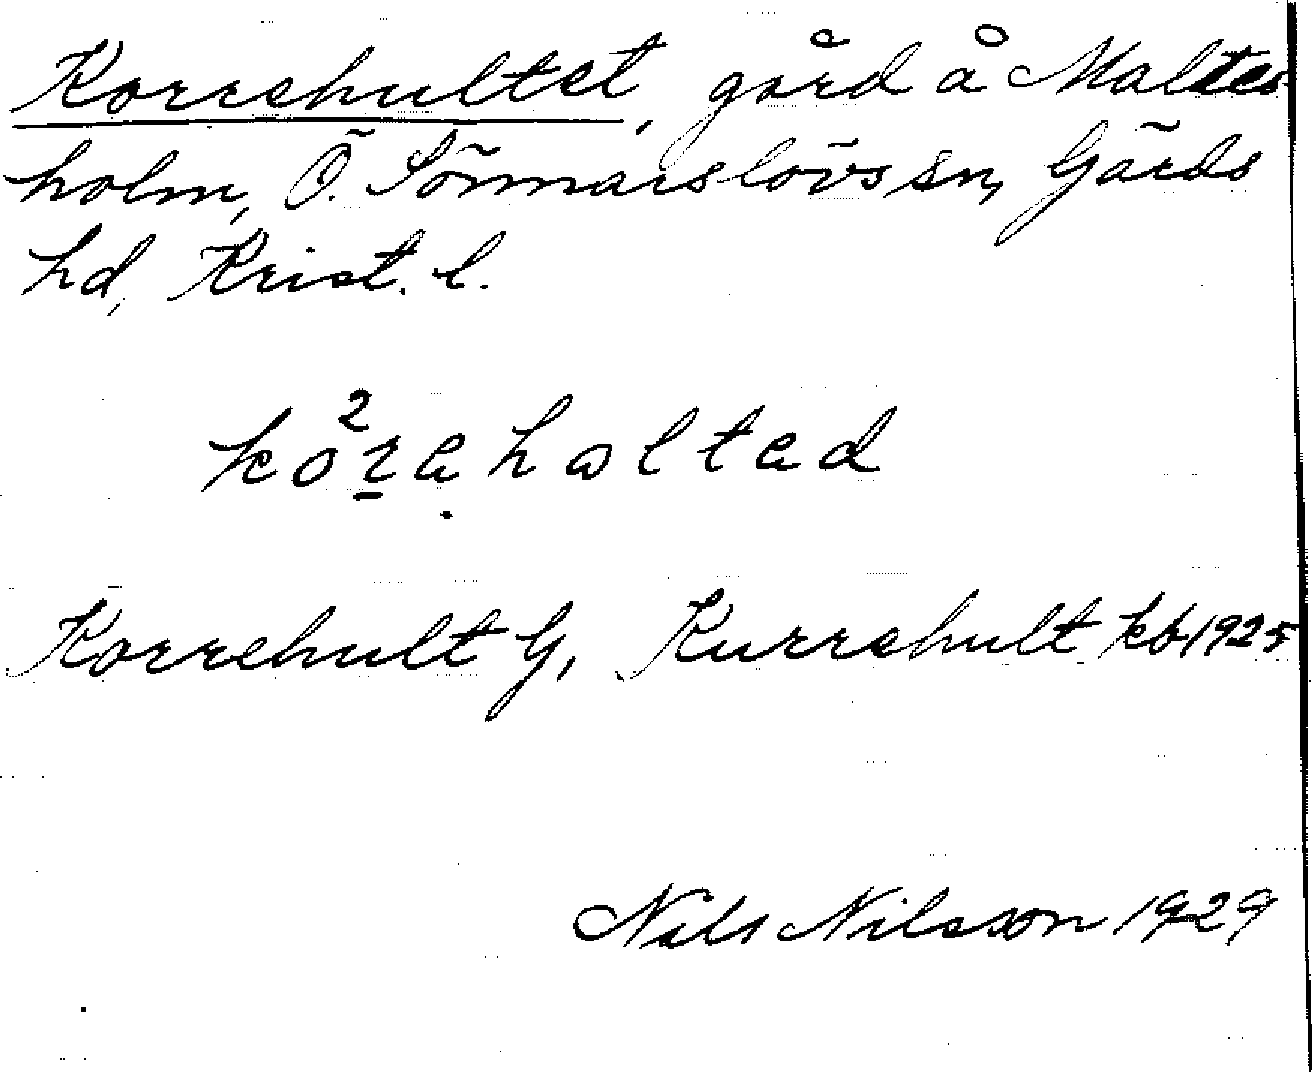 Korrehultet, gård å Maltes-
holm, Ö. Sönnarslövs sn, Gärds
hd, Krist. l.
Korrehult G, Kurrehult kb 1925
Nils Nilsson 1929